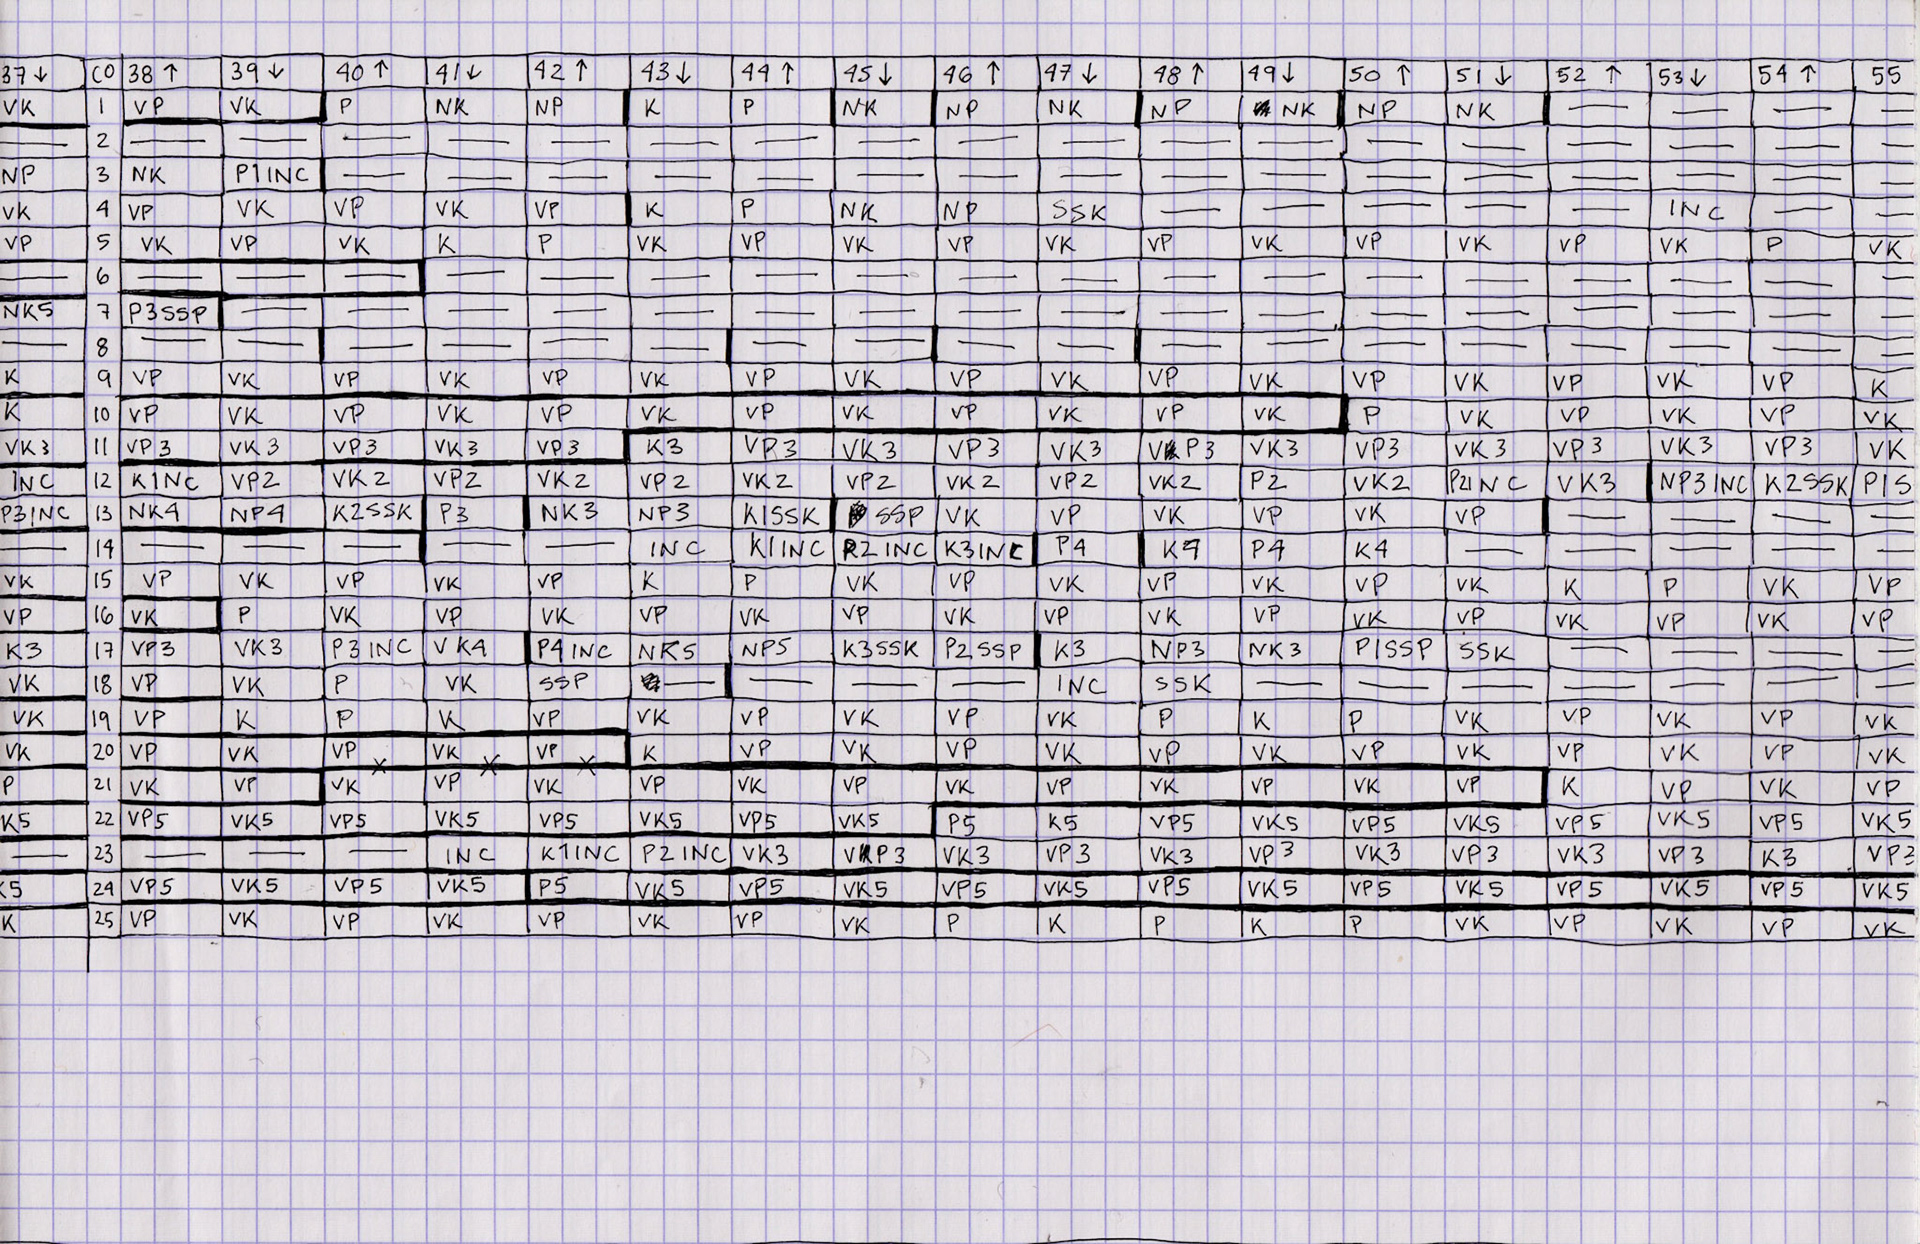 37↓ CO 38↑ 39↓ 40↑ 41↓ 42↑ 43↓ 44↑ 45↓ 46↑ 47↓ 48↑ 49↓ 50↑ 51↓ 52↑ 53↓ 54↑ 55
VK 1 VP VK P NK NP K P NK NP NK NP NK NP NK — — — —
— 2 — — — — — — — — — — — — — — — — — —
NP 3 NK P1INC — — — — — — — — — — — — — — — —
VK 4 VP VK VP VK VP K P NK NP SSK — — — — — INC — —
VP 5 VK VP VK K P VK VP VK VP VK VP VK VP VK VP VK P VK
— 6 — — — — — — — — — — — — — — — — — —
NK5 7 P3SSP — — — — — — — — — — — — — — — — —
— 8 — — — — — — — — — — — — — — — — — —
K 9 VP VK VP VK VP VK VP VK VP VK VP VK VP VK VP VK VP K
K 10 VP VK VP VK VP VK VP VK VP VK VP VK P VK VP VK VP VK
VK3 11 VP3 VK3 VP3 VK3 VP3 K3 VP3 VK3 VP3 VK3 VP3 VK3 VP3 VK3 VP3 VK3 VP3 VK
INC 12 K1NC VP2 VK2 VP2 VK2 VP2 VK2 VP2 VK2 VP2 VK2 P2 VK2 P21NC VK3 NP3INC K2SSK P1S
P3INC 13 NK4 NP4 K2SSK P3 NK3 NP3 K1SSK SSP VK VP VK VP VK VP — — — —
— 14 — — — — — INC K1INC P2INC K3INC P4 K4 P4 K4 — — — — —
VK 15 VP VK VP VK VP K P VK VP VK VP VK VP VK K P VK VP
VP 16 VK P VK VP VK VP VK VP VK VP VK VP VK VP VK VP VK VP
K3 17 VP3 VK3 P3INC VK4 P4INC NK5 NP5 K3SSK P2SSP K3 NP3 NK3 P1SSP SSK — — — —
VK 18 VP VK P VK SSP — — — — INC SSK — — — — — — —
VK 19 VP K P K VP VK VP VK VP VK P K P VK VP VK VP VK
VK 20 VP VK VP VK VP K VP VK VP VK VP VK VP VK VP VK VP VK
X X X
P 21 VK VP VK VP VK VP VK VP VK VP VK VP VK VP K VP VK VP
K5 22 VP5 VK5 VP5 VK5 VP5 VK5 VP5 VK5 P5 K5 VP5 VK5 VP5 VK5 VP5 VK5 VP5 VK5
— 23 — — — INC K1INC P2INC VK3 VP3 VK3 VP3 VK3 VP3 VK3 VP3 VK3 VP3 K3 VP3
K5 24 VP5 VK5 VP5 VK5 P5 VK5 VP5 VK5 VP5 VK5 VP5 VK5 VP5 VK5 VP5 VK5 VP5 VK5
K 25 VP VK VP VK VP VK VP VK P K P K P VK VP VK VP VK